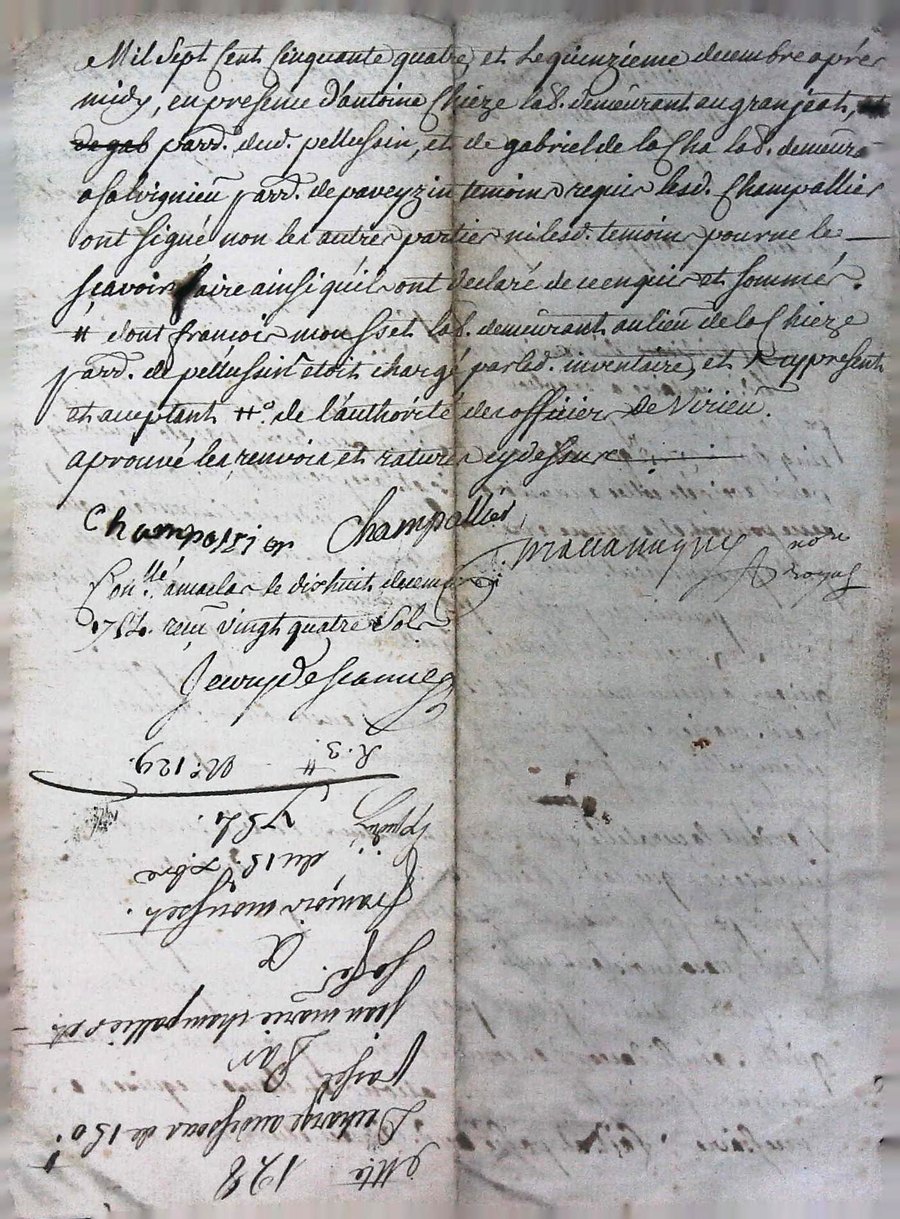 Mil Sept Cent Cinquante quatre, et Le quinzième decembre aprés
midy, en presence d'antoine Chieze lab. demeurant au granjeat,
parr. dud. pellussin, et de gabriel de la Cha lab. demeurt
a Salvignieu parr. de paveyzin temoins requis lesd. Champallier
ont signé non les autres parties ni lesd. temoins pour ne le
sçavoir faire ainsi qu'ils ont declaré de ce enquis et sommés.
# dont francois mousset lab. demeurant au lieu de la Chieze
parr. de pellussin etoit chargé par led. inventaire, et present
et acceptant ##o. de l'authorité des officiers De Virieu.
aprouvé les renvois, et ratures cy dessus
Champallier Champallier
nore royal
Conllé. a maclas le dix huit decembre
1754. reçu vingt quatre Sols
R. 3.# No. 129.
1754.
du 15. xbre
françois mousset.
a
jean marie champallier et
passé Par
Decharge audessous de 150#
Mle 128